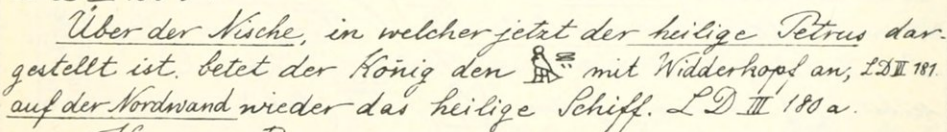 Über der Nische, in welcher jetzt der heilige Petrus dar-
gestellt ist, betet der König den mit Widderkopf an, LD III 181.
auf der Nordwand wieder das heilige Schiff. LD III 180a.